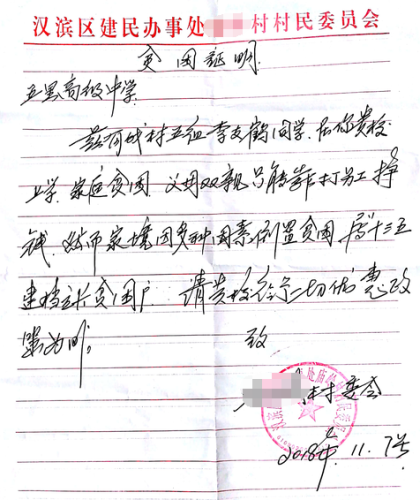 汉滨区建民办事处 村村民委员会
贫困证明
五里高级中学
兹有 村五组李友鹤同学,在你贵校
上学,家庭贫困,父母双亲只能靠打工挣
钱,然而家境因多种因素倒置贫困,属十三五
建档立卡贫困户,请贵校给予一切优惠政
策为盼。
致
村委会
2018年11.7号